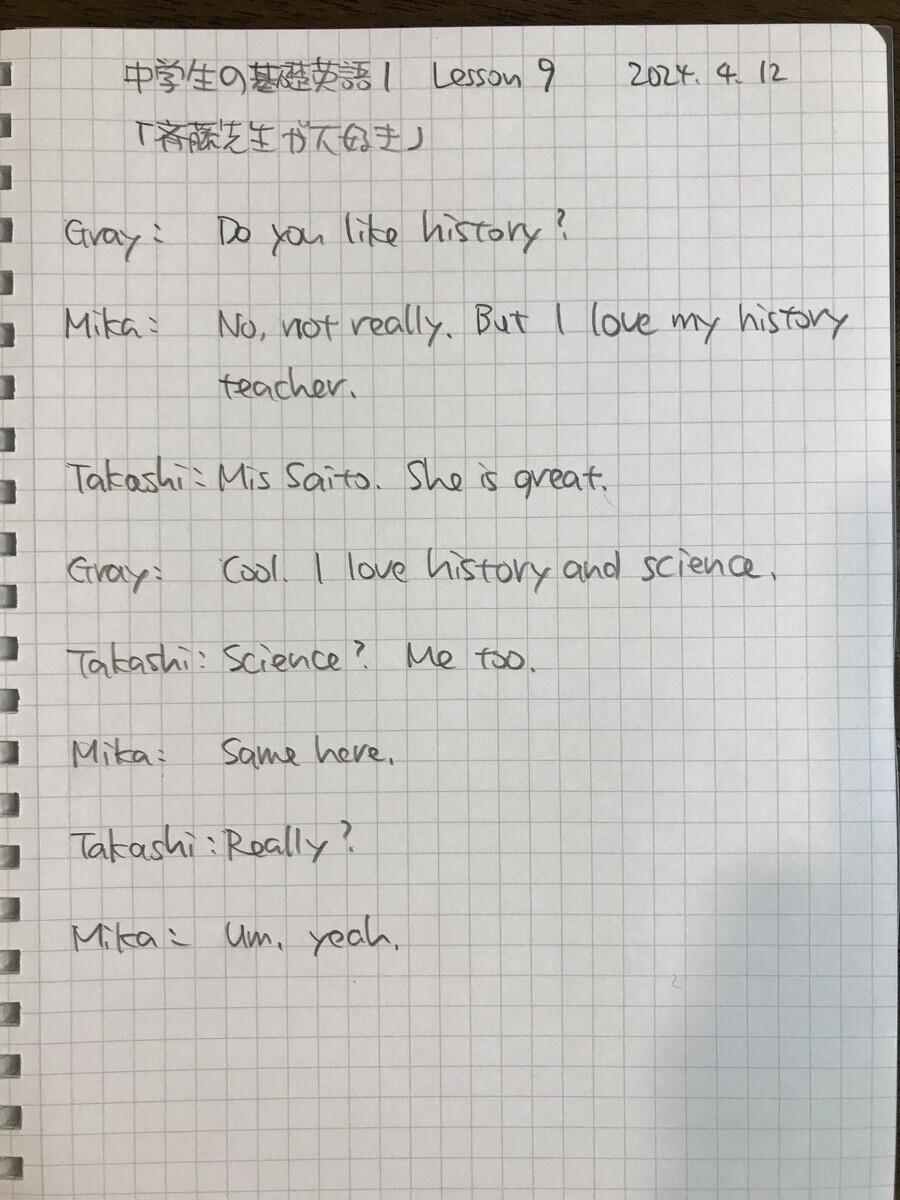 中学生の基礎英語1 Lesson 9 2024. 4. 12
「斉藤先生が大好き」
Gray: Do you like history?
Mika: No, not really. But I love my history
teacher.
Takashi: Mis Saito. She is great.
Gray: Cool. I love history and science.
Takashi: Science? Me too.
Mika: Same here.
Takashi: Really?
Mika: Um, yeah.